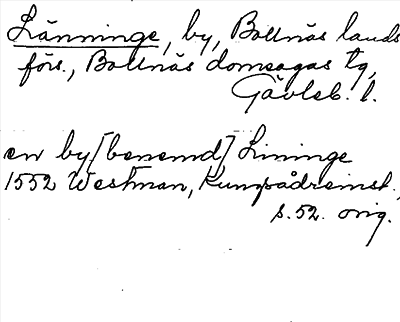 Länninge, by, Bollnäs lands
förs., Bollnäs domsagas tg,
Gävleb. l.
en by [benemd] Lininge
1552 Westman, Kumpådreinst.,
s. 52. orig.